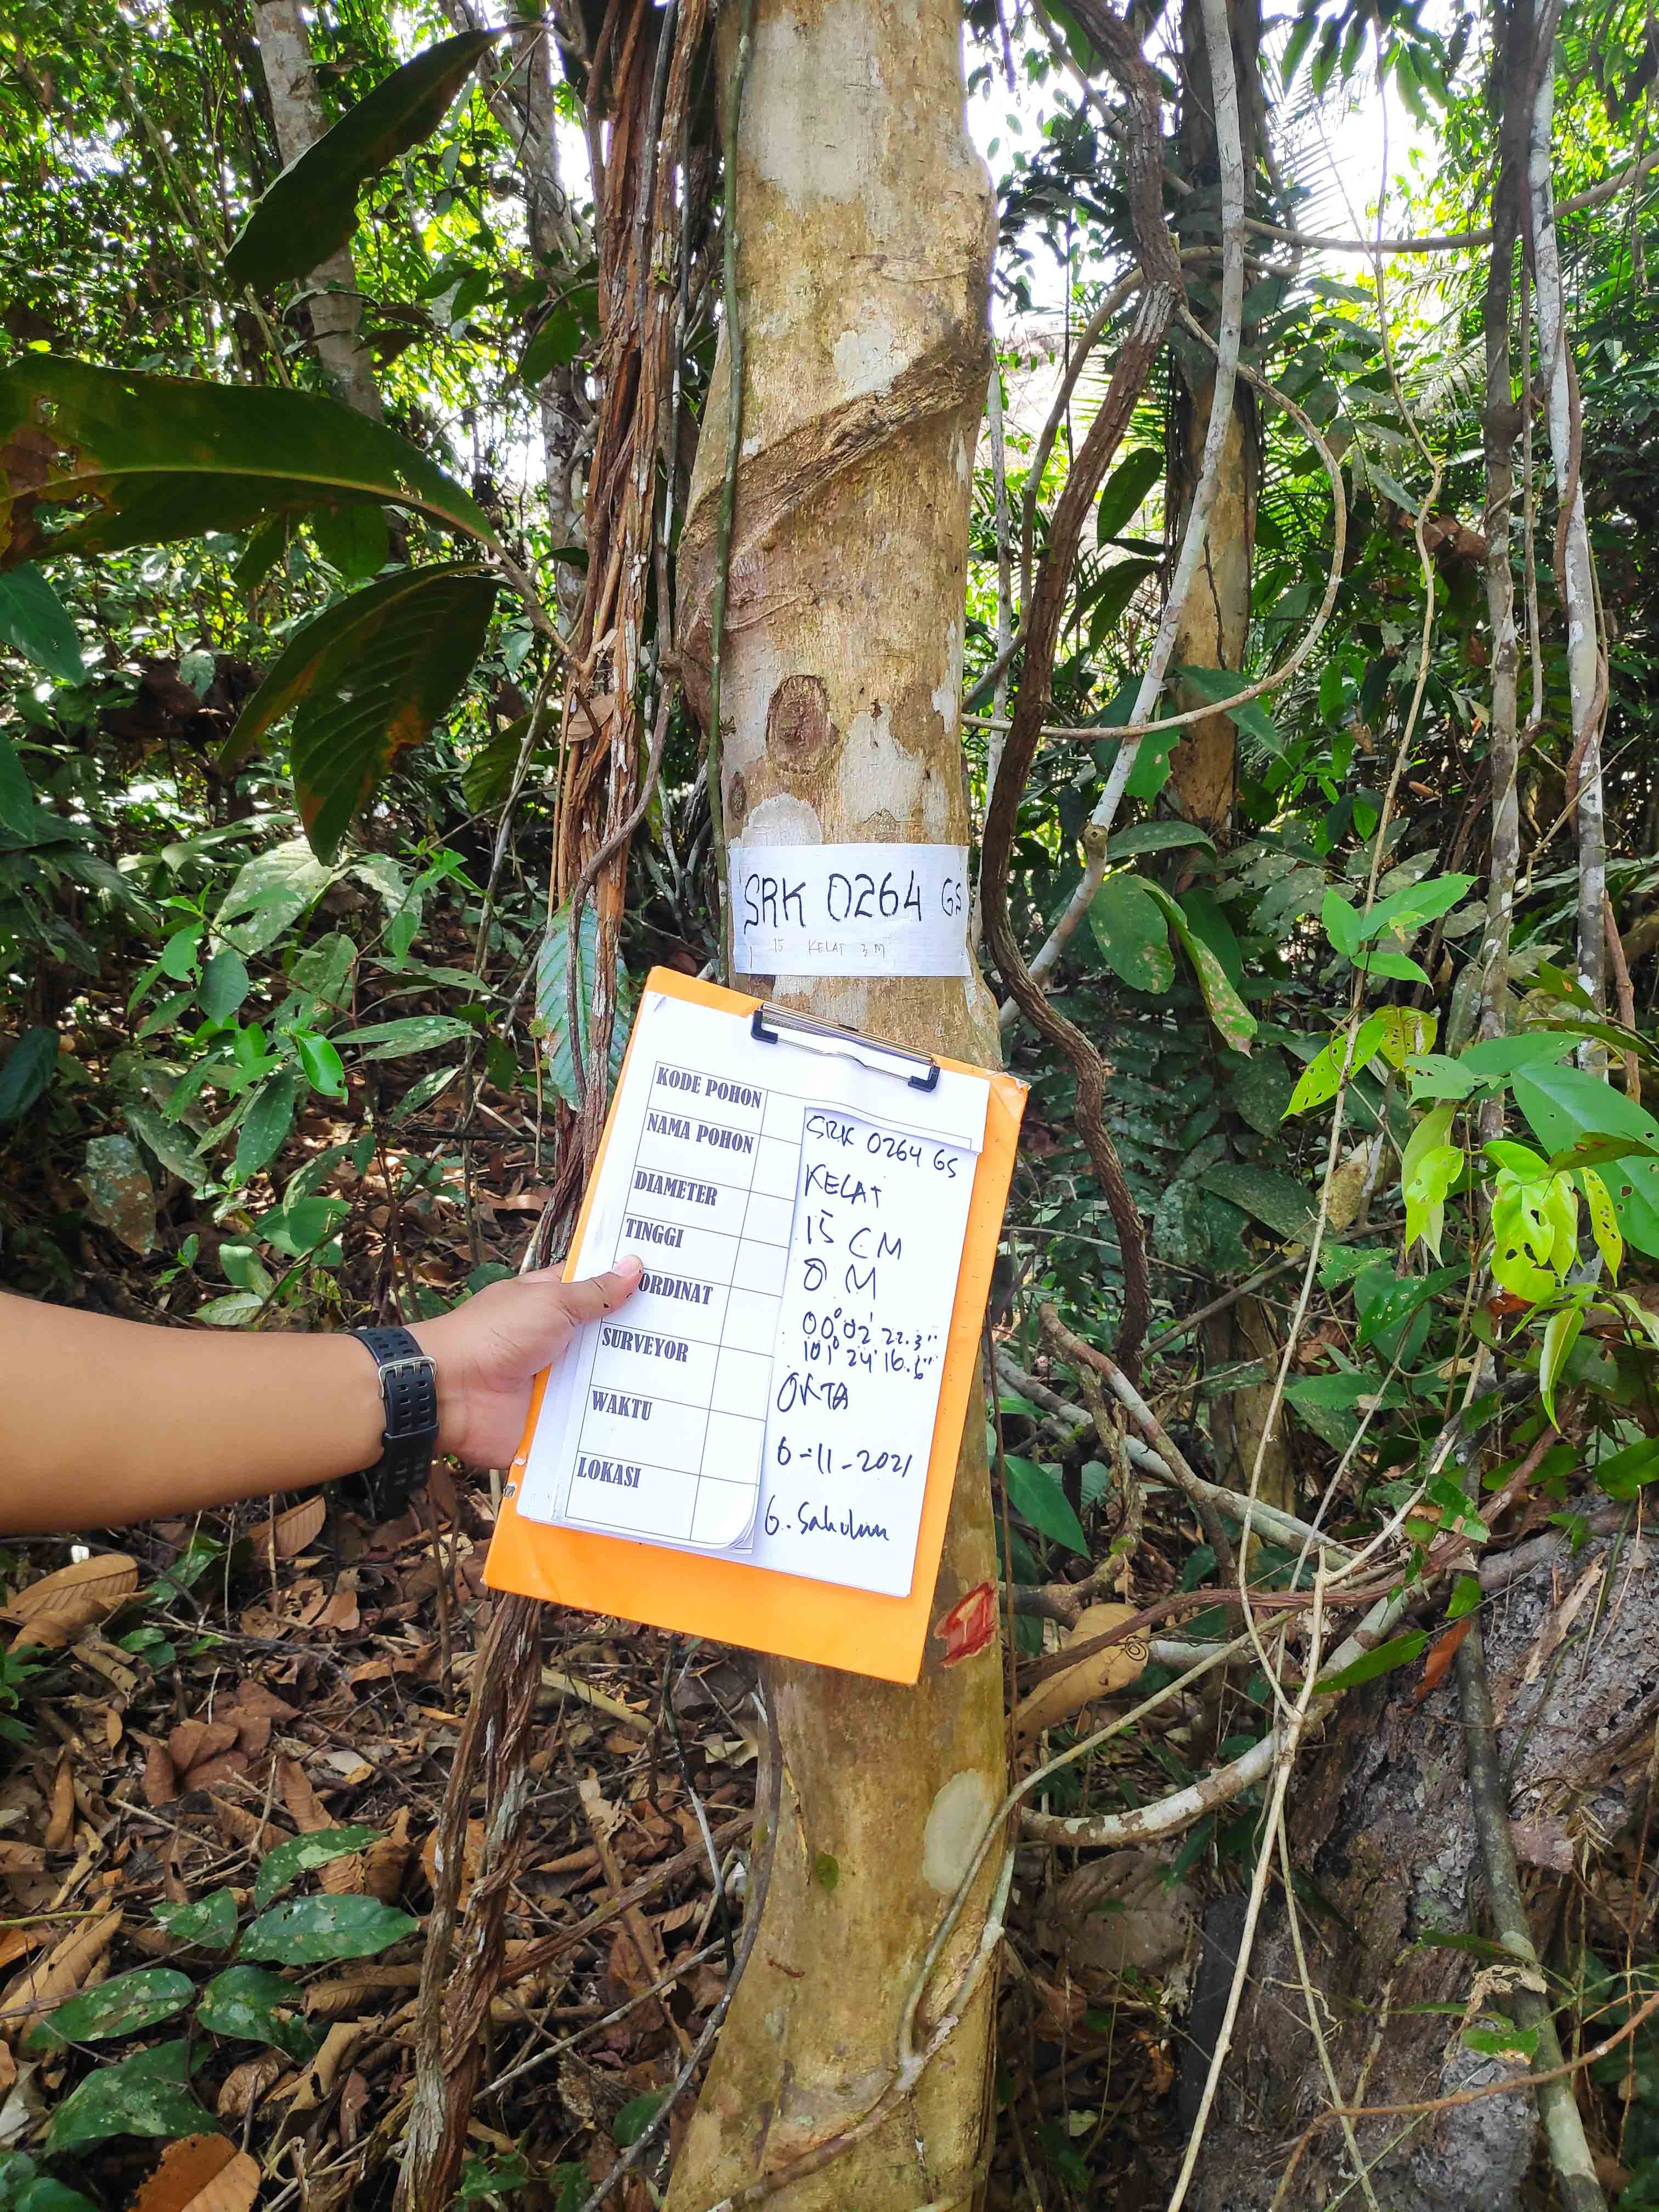 SRK 0264 GS
15 KELAT 3 M
KODE POHON SRK 0264 GS
NAMA POHON KELAT
DIAMETER 15 CM
TINGGI 8 M
ORDINAT 00°02'22.3"
101°24'16.6"
SURVEYOR OKTA
WAKTU 6-11-2021
LOKASI